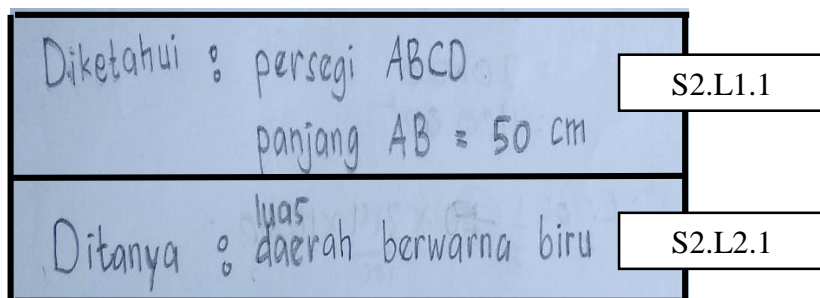 Diketahui : persegi ABCD
S2.L1.1
panjang AB = 50 cm
luas
Ditanya : daerah berwarna biru
S2.L2.1